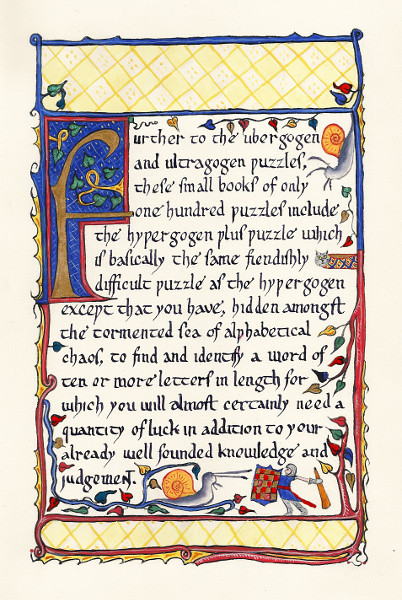 Further to the ubergogen
and ultragogen puzzles,
these small books of only
one hundred puzzles include
the hypergogen plus puzzle which
is basically the same fiendishly
difficult puzzle as the hypergogen
except that you have, hidden amongst
the tormented sea of alphabetical
chaos, to find and identify a word of
ten or more letters in length for
which you will almost certainly need a
quantity of luck in addition to your
already well founded knowledge and
judgement.